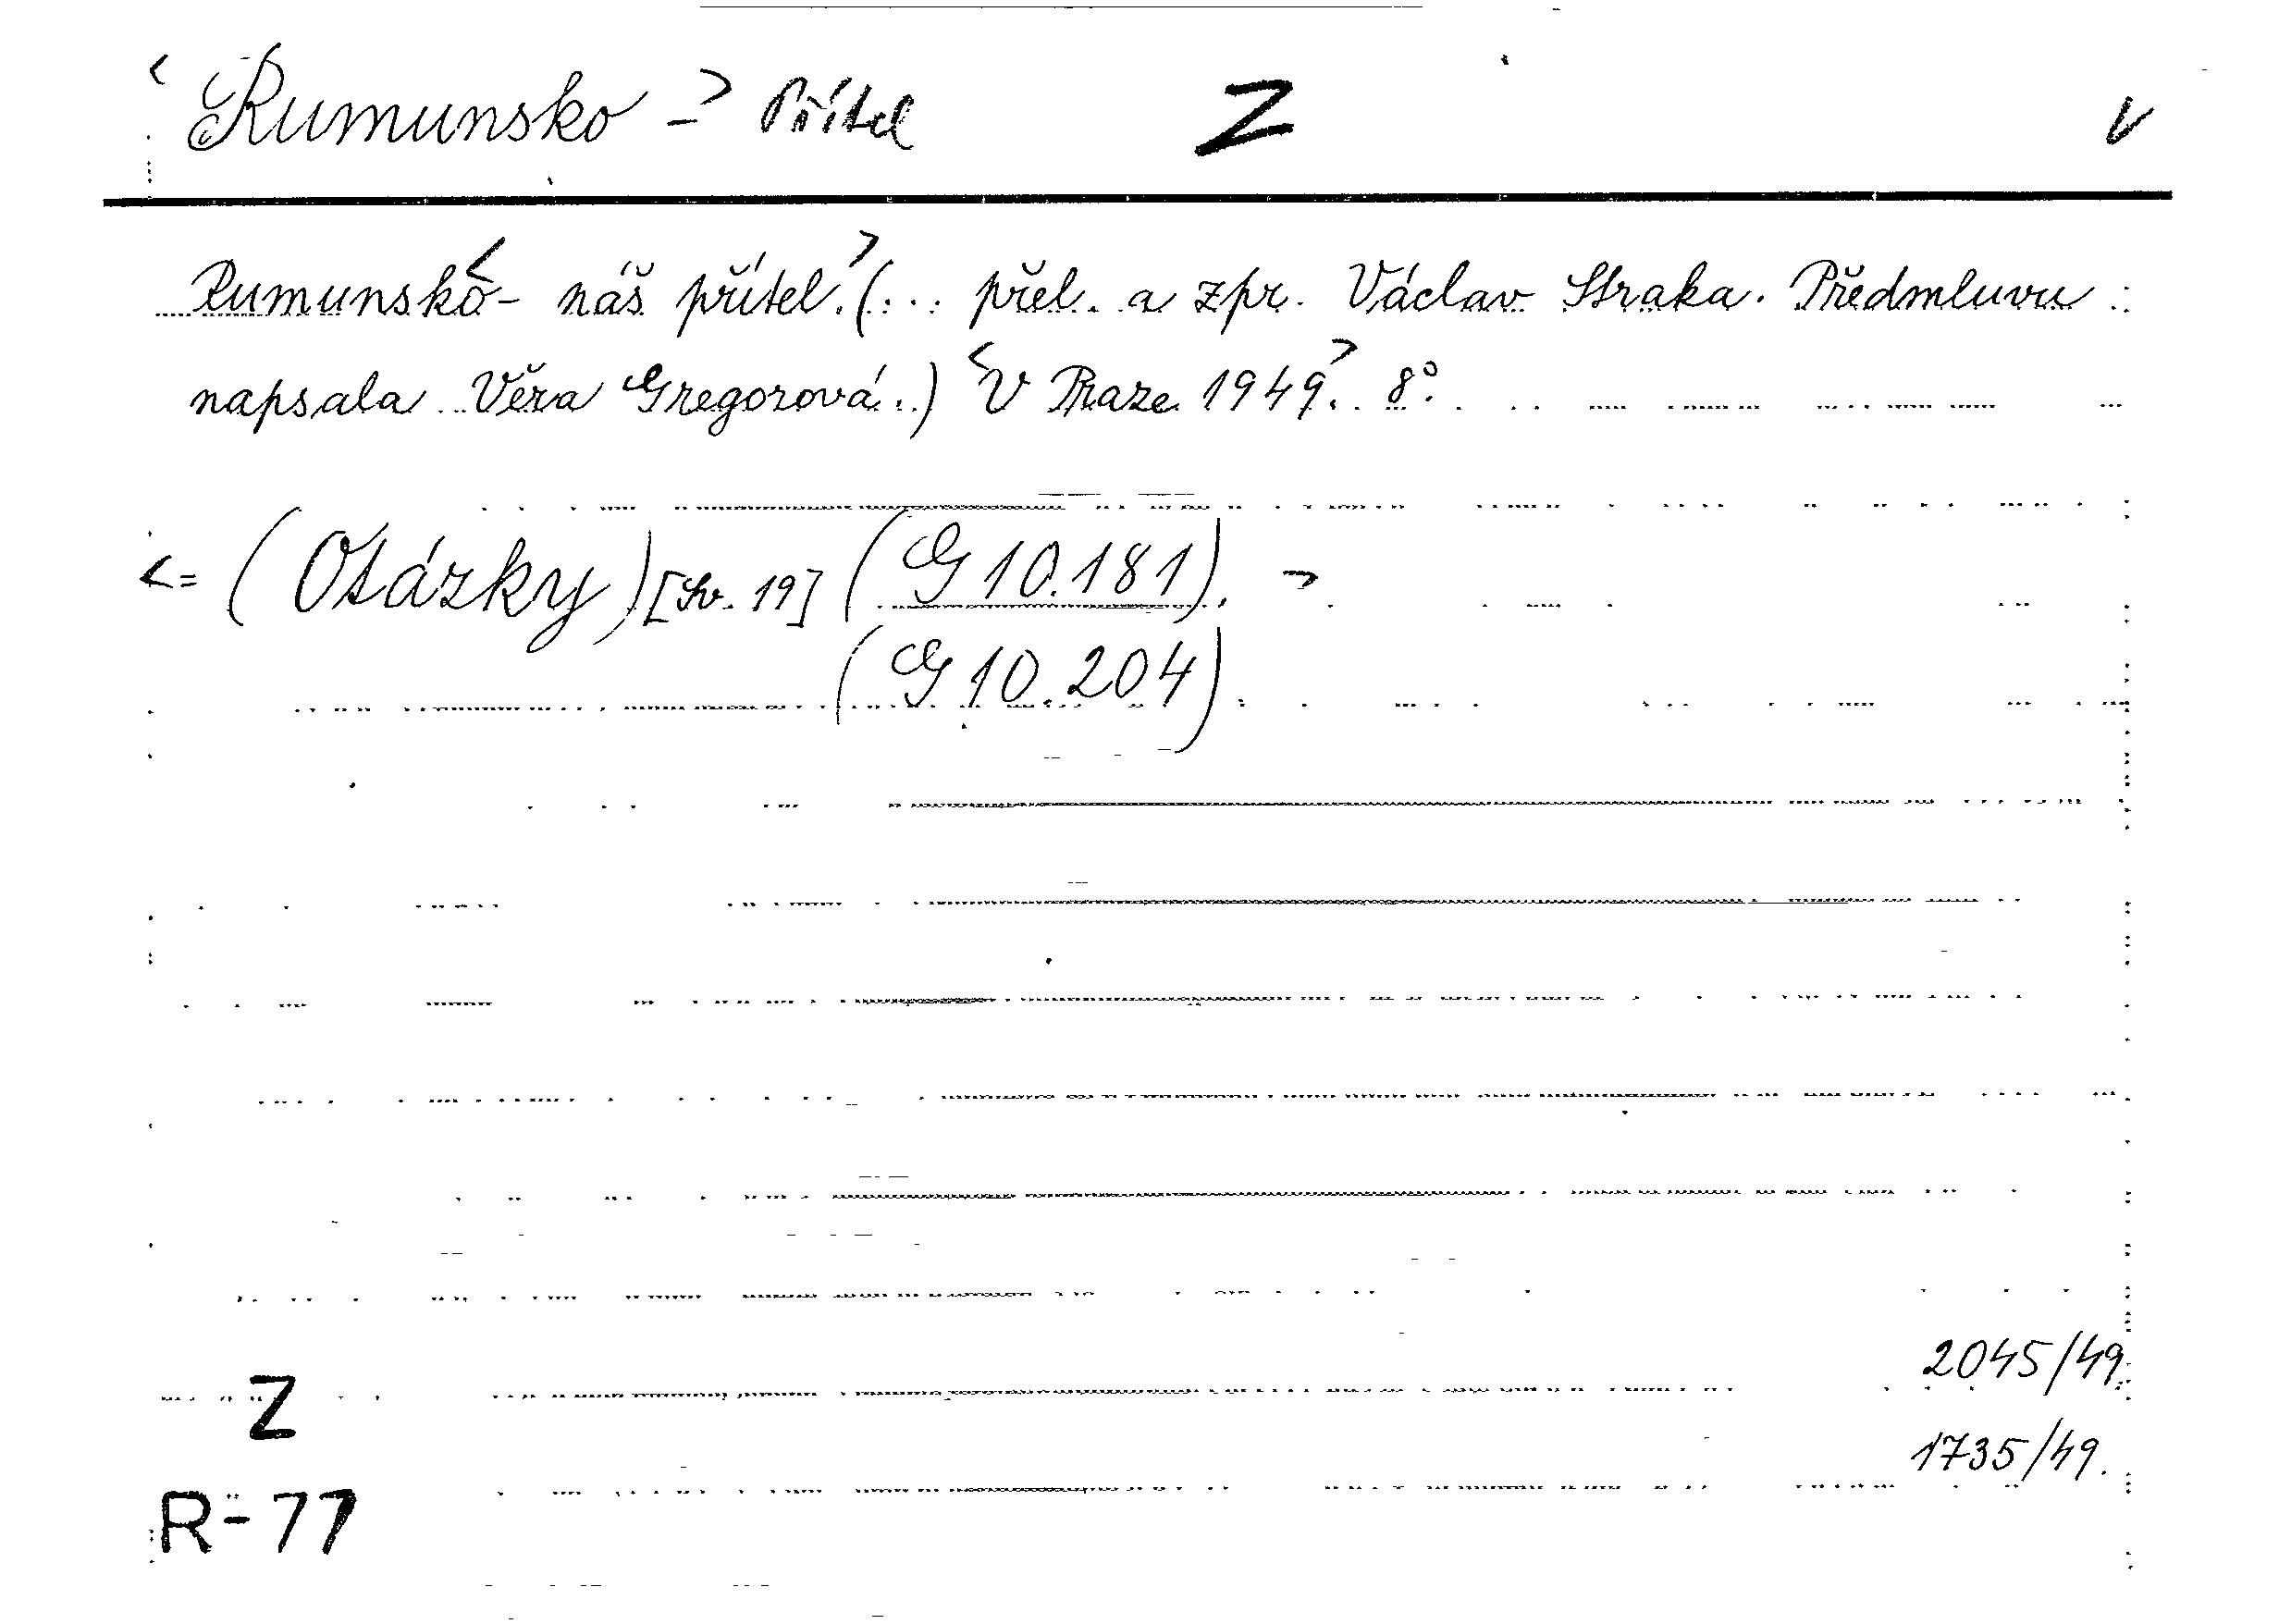 < Rumunsko -> Přítel Z V
Rumunsko<- náš přítel.> (... přel. a zpr. Václav Straka. Předmluvu
napsala Věra Gregorová..) <V Praze 1949>. 8°.
<= (Otázky) [Sv. 19] (G 10.181). >
(G 10.204).
2045/49.
Z
1735/49.
R-77